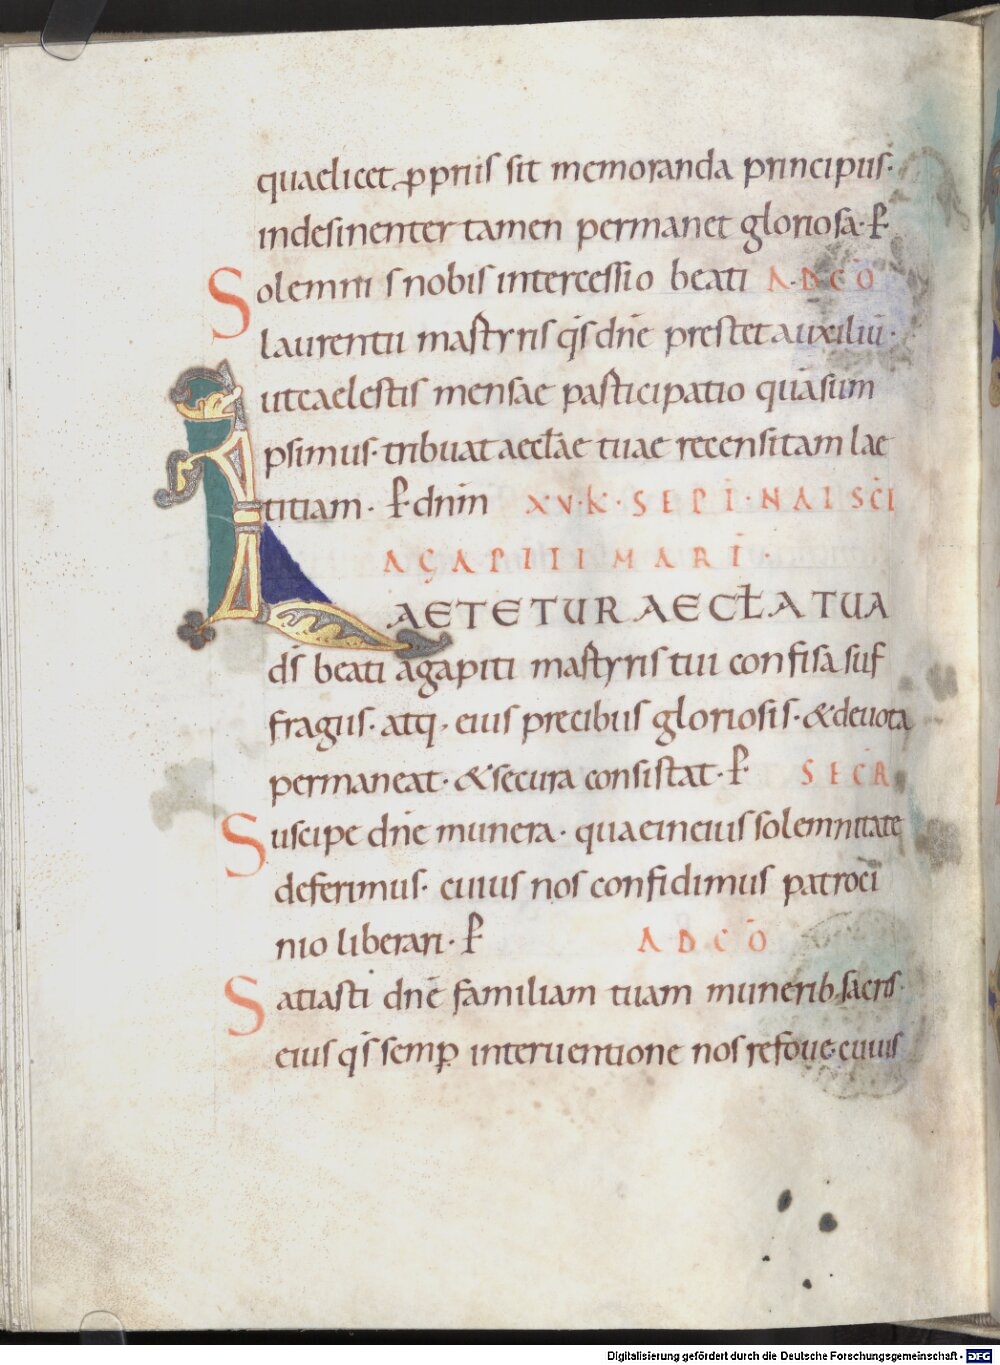 quaelicet ,ppriis sit memoranda principiis·
indesinenter tamen permanet gloriosa· P̄
Solemnis nobis intercessio beati A·D C Ō
laurentii martyris q̄s dn̄e prestet auxiliū·
ut caelestis mensae participatio quāsum
psimus· tribuat aeccłae tuae recensitam lae
titiam· P̄ dn̄m XV·K·SEPT·NAT SC̄I
AGAPITI MART̄·
LAETETUR AECCŁA TUA
d̄s beati agapiti martyris tui confisa suf
fragiis· atq· eius precibus gloriosis· & deuota
permaneat· & secura consistat· P̄ SECR̄
Suscipe dn̄e munera· quae in eius solemnitate
deferimus· cuius nos confidimus patroci
nio liberari· P̄ A D C Ō
Satiasti dn̄e familiam tuam munerib; sacris·
eius q̄s semp̄ interuentione nos refoue· cuius
Digitalisierung gefördert durch die Deutsche Forschungsgemeinschaft - DFG